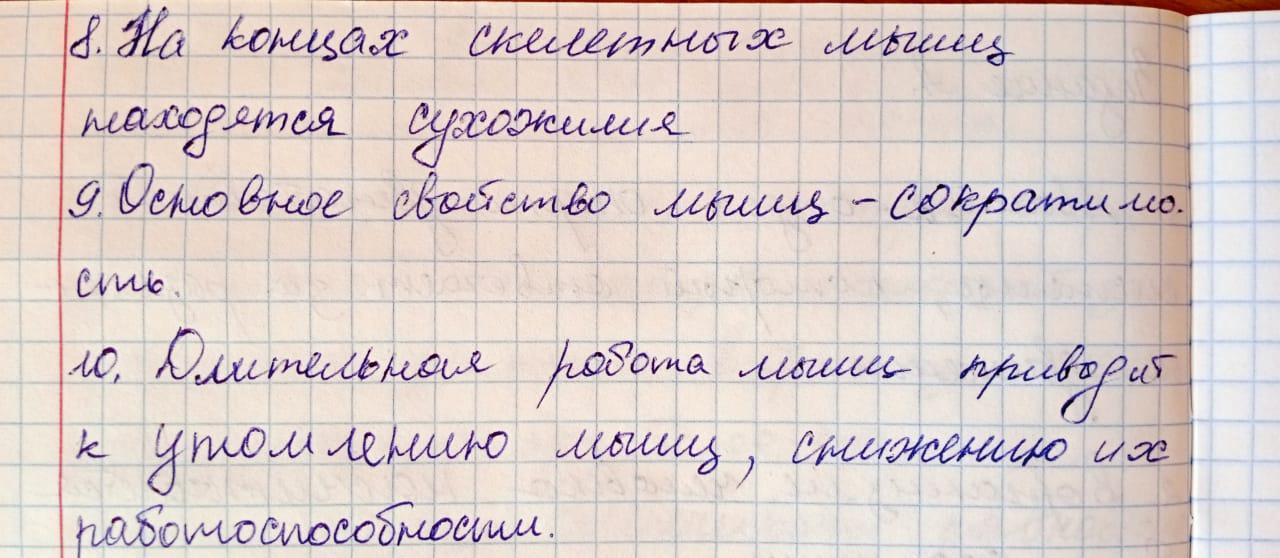 8. На концах скелетных мышц
находятся сухожилия
9. Основное свойство мышц - сократимо.
сть.
10. Длительная работа мышц приводит
к утомлению мышц, снижению их
работоспособности.